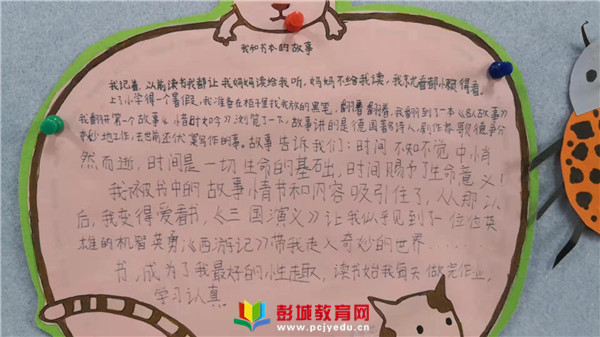 我和书本的故事
我记着,以前读书我都让我妈妈读给我听,妈妈不给我读,我就看都懒得看。
上了小学得一个暑假,我准备在柜子里找我放的黑笔,翻着翻着,我翻到了一本《故故事》
我翻开第一个故事《惜时如吟》浏览了一下,故事讲的是德国著诗人,剧作家歌德争分
秒地工作,去世前还伏案写作的事。故事告诉我们:时间不知不觉中悄
然而逝,时间是一切生命的基础,时间赐予了生命意义!
我被书中的故事情书和内容吸引住了,从那以
后,我变得爱看书,《三国演义》让我似乎见到了一位位英
雄的机智英勇,《西游记》带我走入奇妙的世界……
书,成为了我最好的小生趣,读书始我每天做完作业,
学习认真
彭城教育网
www.pcjyedu.cn